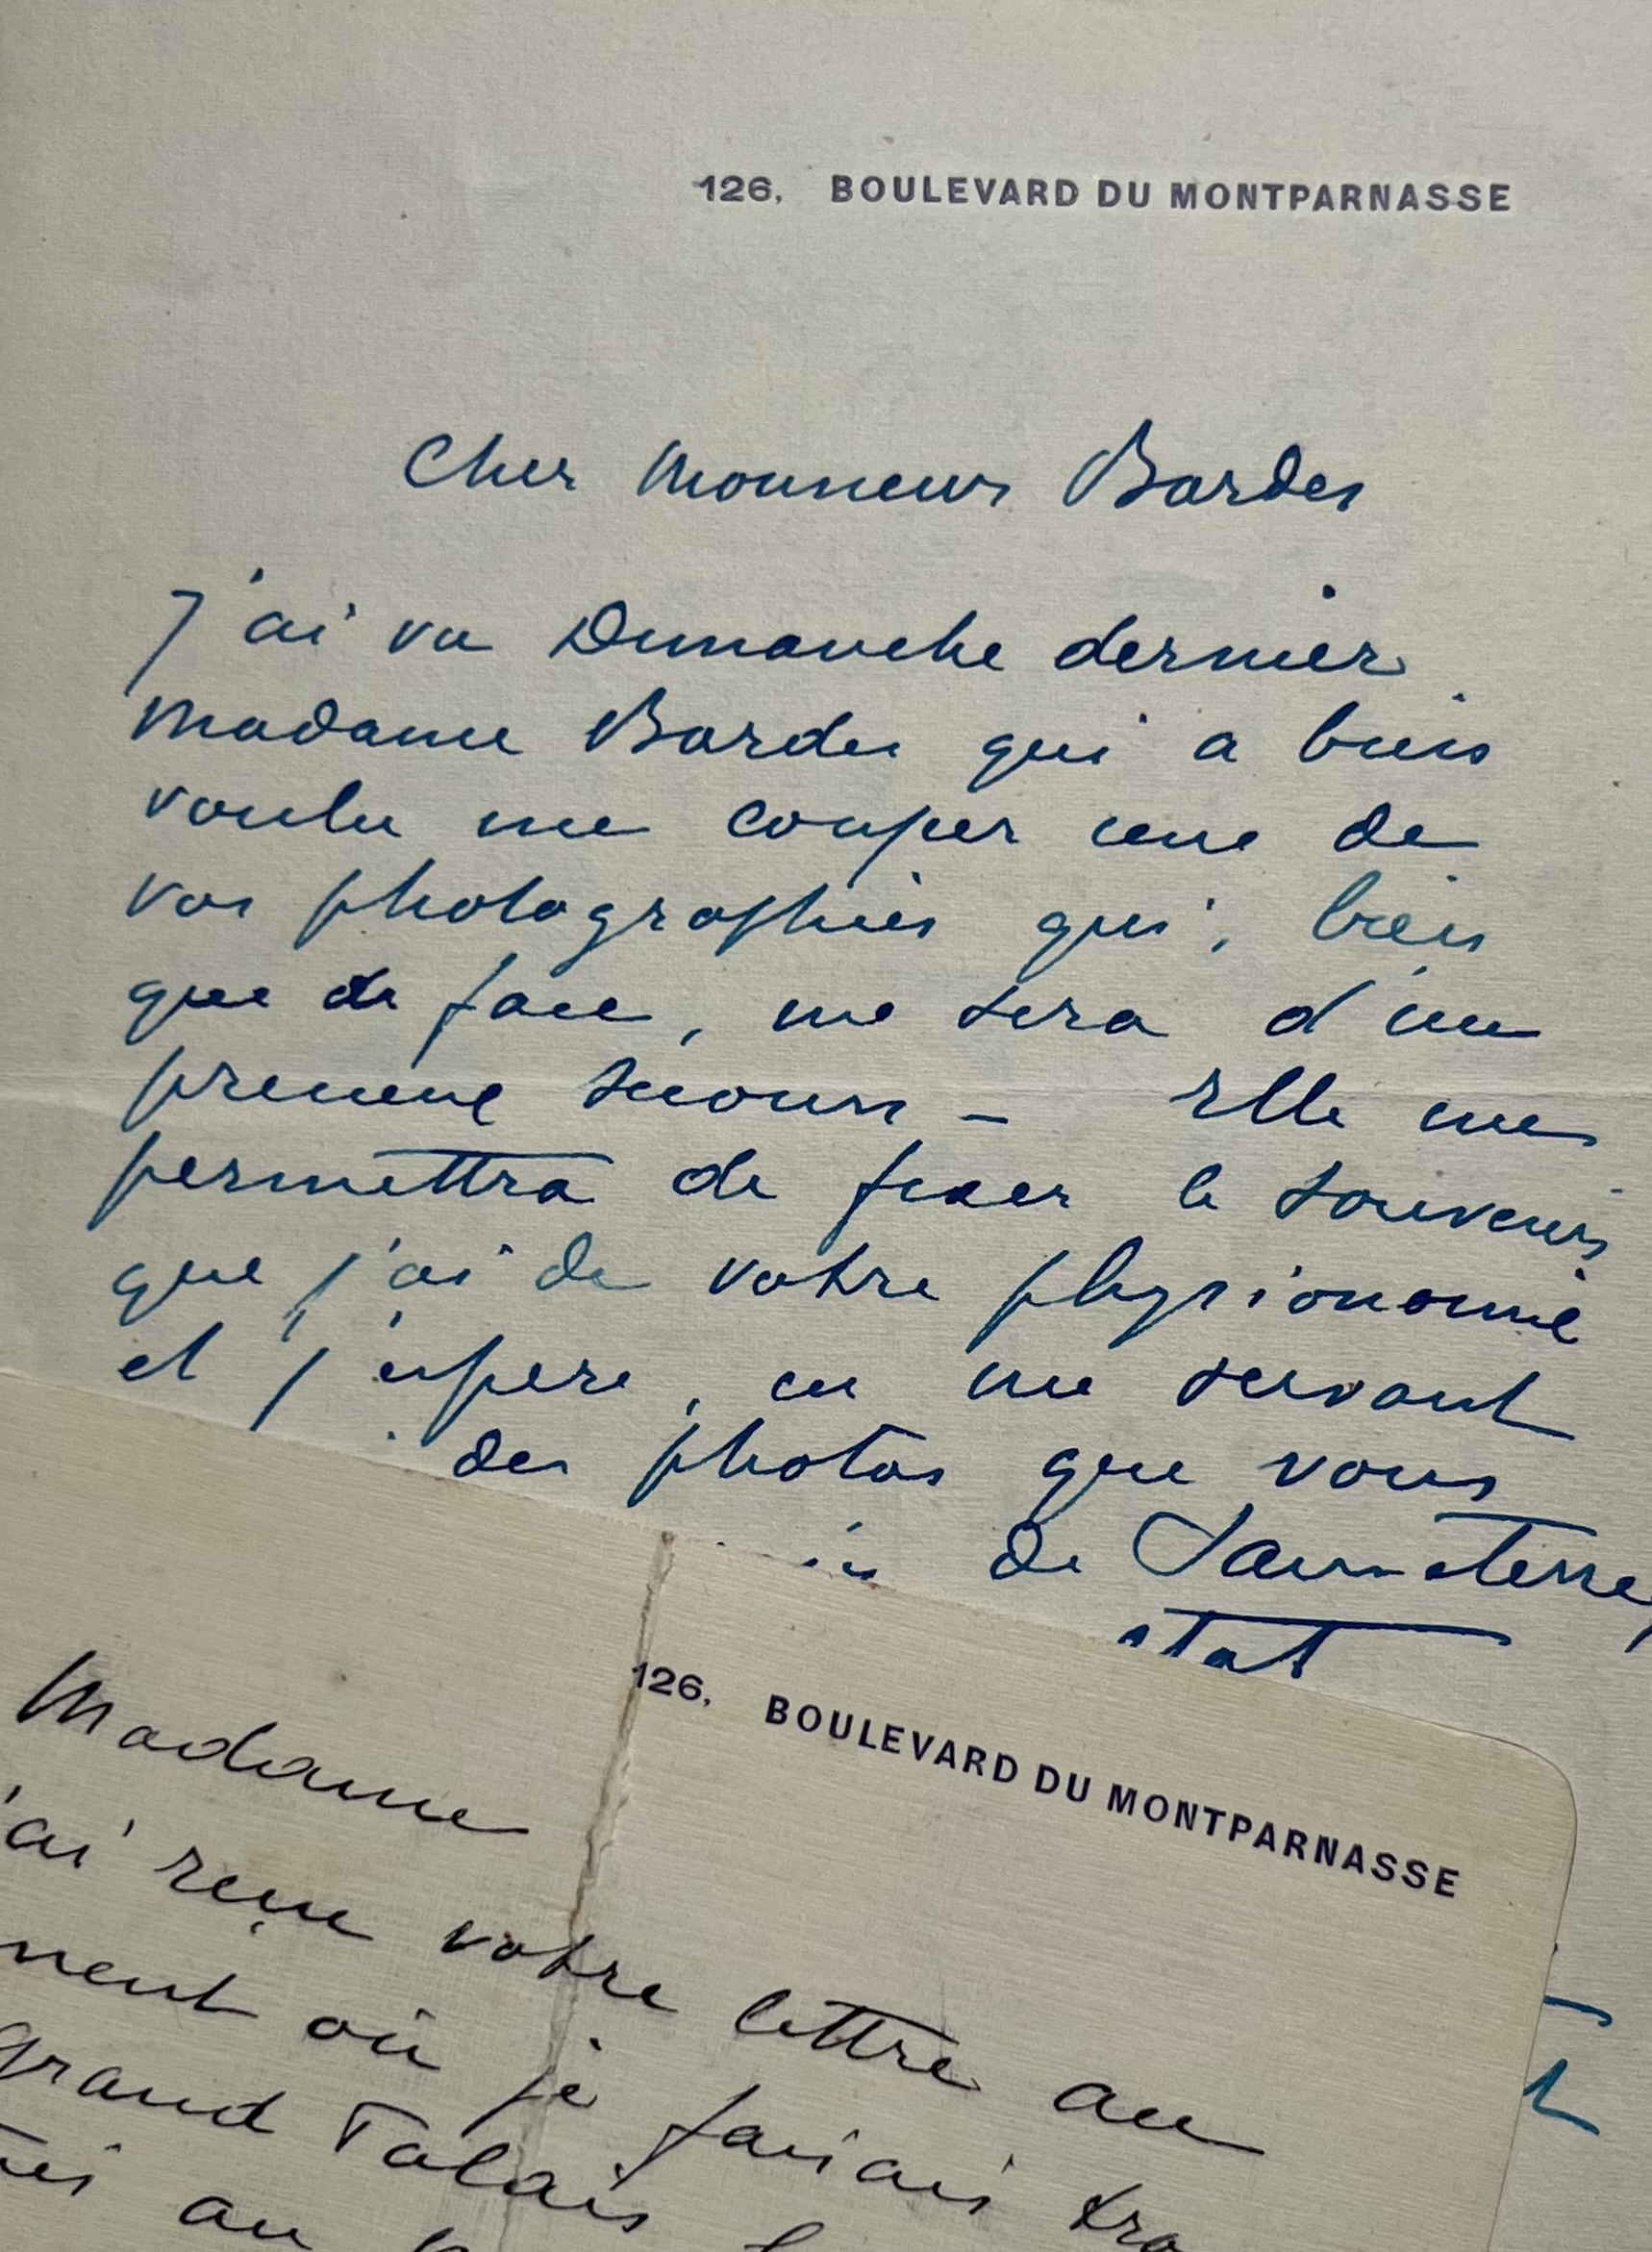 126, BOULEVARD DU MONTPARNASSE
Cher Monsieur Bardes
J'ai vu Dimanche dernier
Madame Bardes qui a bien
voulu me couper une de
vos photographies qui, bien
que de face, me sera d'un
precieux secours – Elle me
permettra de fixer le souvenir
que j'ai de votre physionomie
et j'espere, en me servant
des photos que vous
de
126, BOULEVARD DU MONTPARNASSE
Madame
j'ai reçu votre lettre au
ment où je faisais
grand Palais
au